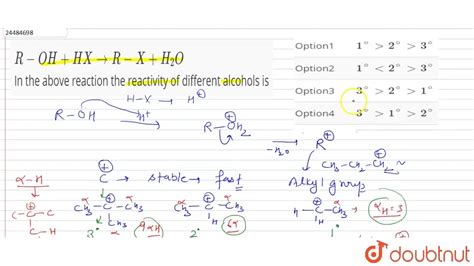 24484698
R – OH + HX → R – X + H₂O
In the above reaction the reactivity of different alcohols is
Option1 1° > 2° > 3°
Option2 1° < 2° > 3°
Option3 3° > 2° > 1°
Option4 3° > 1° > 2°
H-X → H⊕
R-OH H⁺ → R-OH₂ -H₂O → R⊕
C⊕ → stable → fast
CH₃-CH₂-CH₂
Alkyl group
α-H
CH₃-C-CH₃
CH₃
9αH
CH₃-C-CH₃
H
6α
H-C-CH₃
H
αH=3
-C-C
H
3° 2° 1°
doubtnut